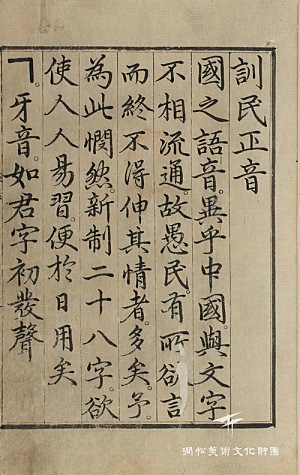 訓民正音
國之語音。異乎中國。與文字
不相流通。故愚民。有所欲言
而終不得伸其情者。多矣。予。
為此憫然。新制二十八字。欲
使人人易習。便於日用矣
ㄱ。牙音。如君字初發聲
澗松美術文化財團